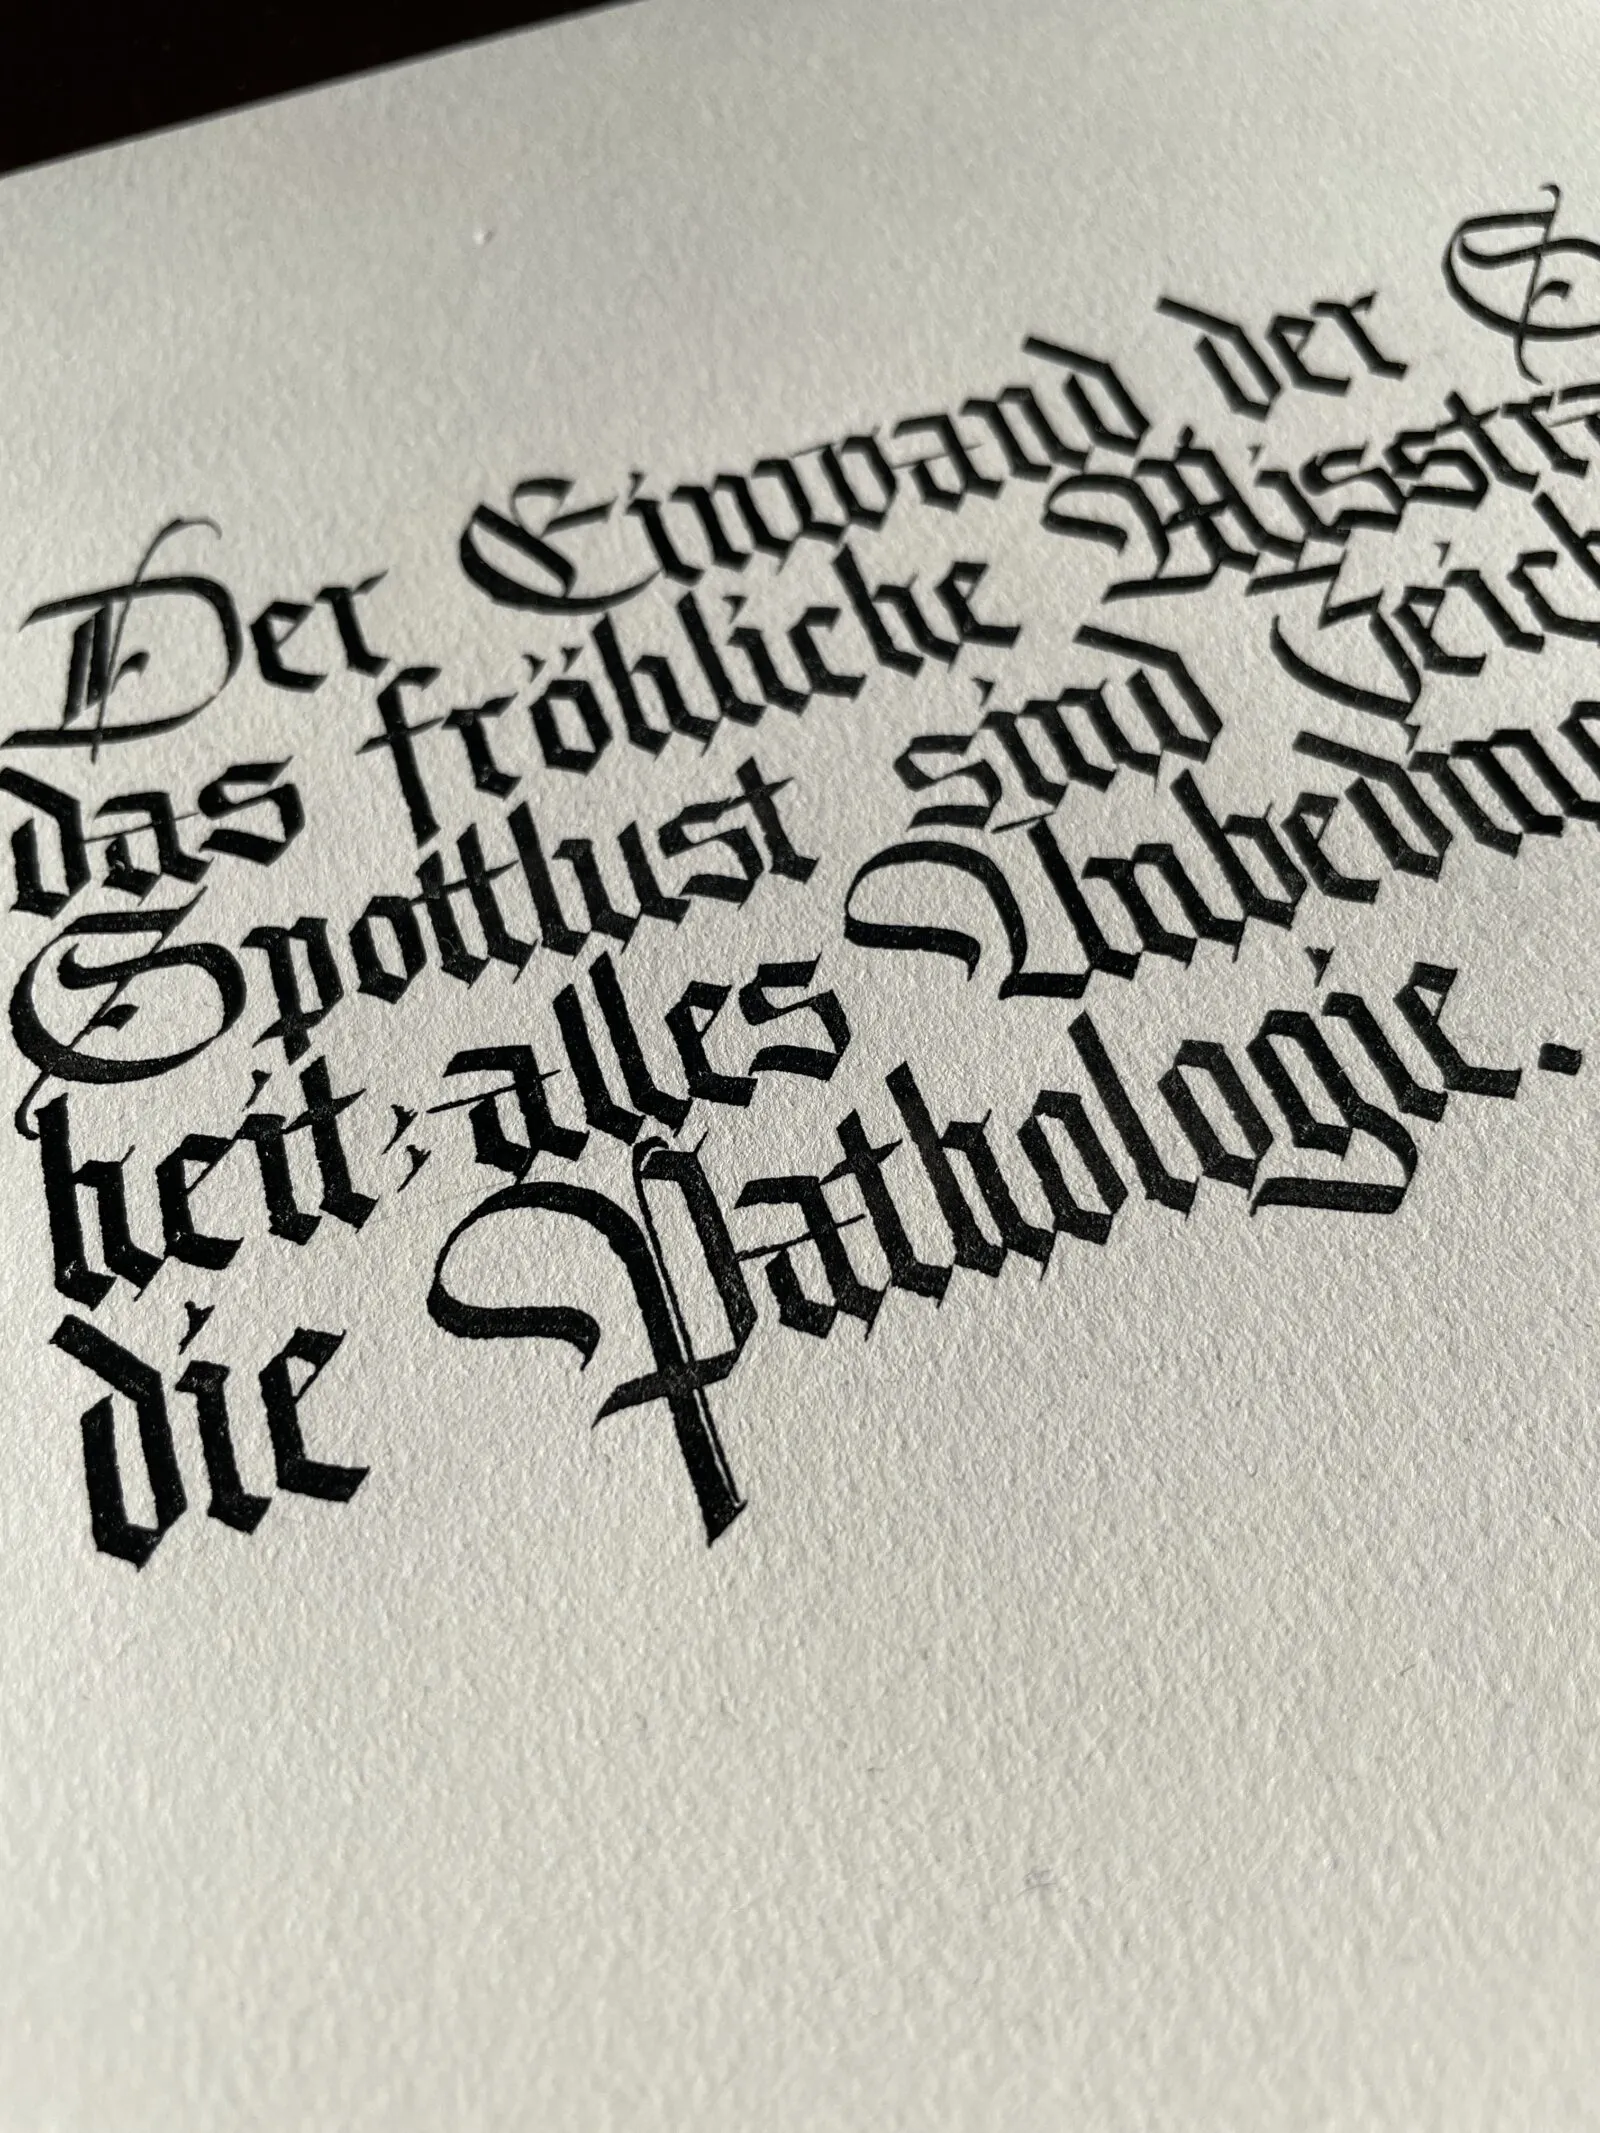 Der Einwand der S
das fröhliche Misstra
Spottlust sind Zeich
heit; alles Unbeding
die Pathologie.